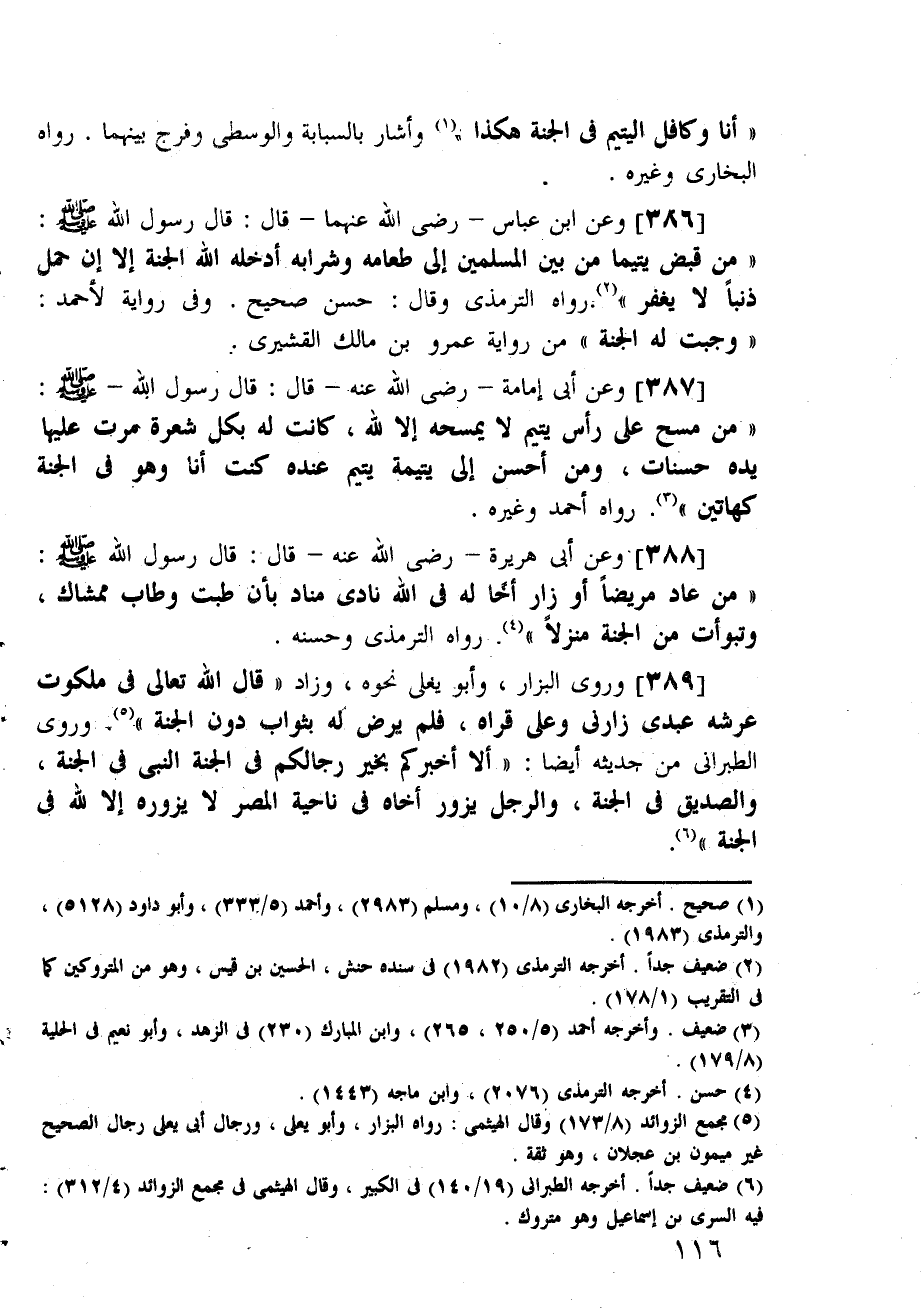 « أنا وكافل اليتيم فى الجنة هكذا »(١) وأشار بالسبابة والوسطى وفرج بينهما . رواه
البخارى وغيره .
[٣٨٦] وعن ابن عباس – رضى الله عنهما – قال : قال رسول الله ﷺ :
« من قبض يتيما من بين المسلمين إلى طعامه وشرابه أدخله الله الجنة إلا إن حمل
ذنباً لا يغفر »(٢).رواه الترمذى وقال : حسن صحيح . وفى رواية لأحمد :
« وجبت له الجنة » من رواية عمرو بن مالك القشيرى .
[٣٨٧] وعن أبى إمامة – رضى الله عنه – قال : قال رسول الله – ﷺ :
« من مسح على رأس يتيم لا يمسحه إلا لله ، كانت له بكل شعرة مرت عليها
يده حسنات ، ومن أحسن إلى يتيمة يتيم عنده كنت أنا وهو فى الجنة
كهاتين »(٣). رواه أحمد وغيره .
[٣٨٨] وعن أبى هريرة – رضى الله عنه – قال : قال رسول الله ﷺ :
« من عاد مريضاً أو زار أخًا له فى الله نادى مناد بأن طبت وطاب ممشاك ،
وتبوأت من الجنة منزلاً »(٤). رواه الترمذى وحسنه .
[٣٨٩] وروى البزار ، وأبو يغلى نحوه ، وزاد « قال الله تعالى فى ملكوت
عرشه عبدى زارنى وعلى قراه ، فلم يرض له بثواب دون الجنة »(٥). وروى
الطبرانى من حديثه أيضا : « ألا أخبركم بخير رجالكم فى الجنة النبى فى الجنة ،
والصديق فى الجنة ، والرجل يزور أخاه فى ناحية المصر لا يزوره إلا لله فى
الجنة »(٦).
(١) صحيح . أخرجه البخارى (١٠/٨) ، ومسلم (٢٩٨٣) ، وأحمد (٣٣٣/٥) ، وأبو داود (٥١٢٨) ،
والترمذى (١٩٨٣) .
(٢) ضعيف جداً . أخرجه الترمذى (١٩٨٢) فى سنده حنش ، الحسين بن قيس ، وهو من المتروكين كما
فى التقريب (١٧٨/١) .
(٣) ضعيف . وأخرجه أحمد (٢٥٠/٥ ، ٢٦٥) ، وابن المبارك (٢٣٠) فى الزهد ، وأبو نعيم فى الحلية
(١٧٩/٨) .
(٤) حسن . أخرجه الترمذى (٢٠٧٦) ، وابن ماجه (١٤٤٣) .
(٥) مجمع الزوائد (١٧٣/٨) وقال الهيثمى : رواه البزار ، وأبو يعلى ، ورجال أبى يعلى رجال الصحيح
غير ميمون بن عجلان ، وهو ثقة .
(٦) ضعيف جداً . أخرجه الطبرانى (١٤٠/١٩) فى الكبير ، وقال الهيثمى فى مجمع الزوائد (٣١٢/٤) :
فيه السرى بن إسماعيل وهو متروك .
١١٦